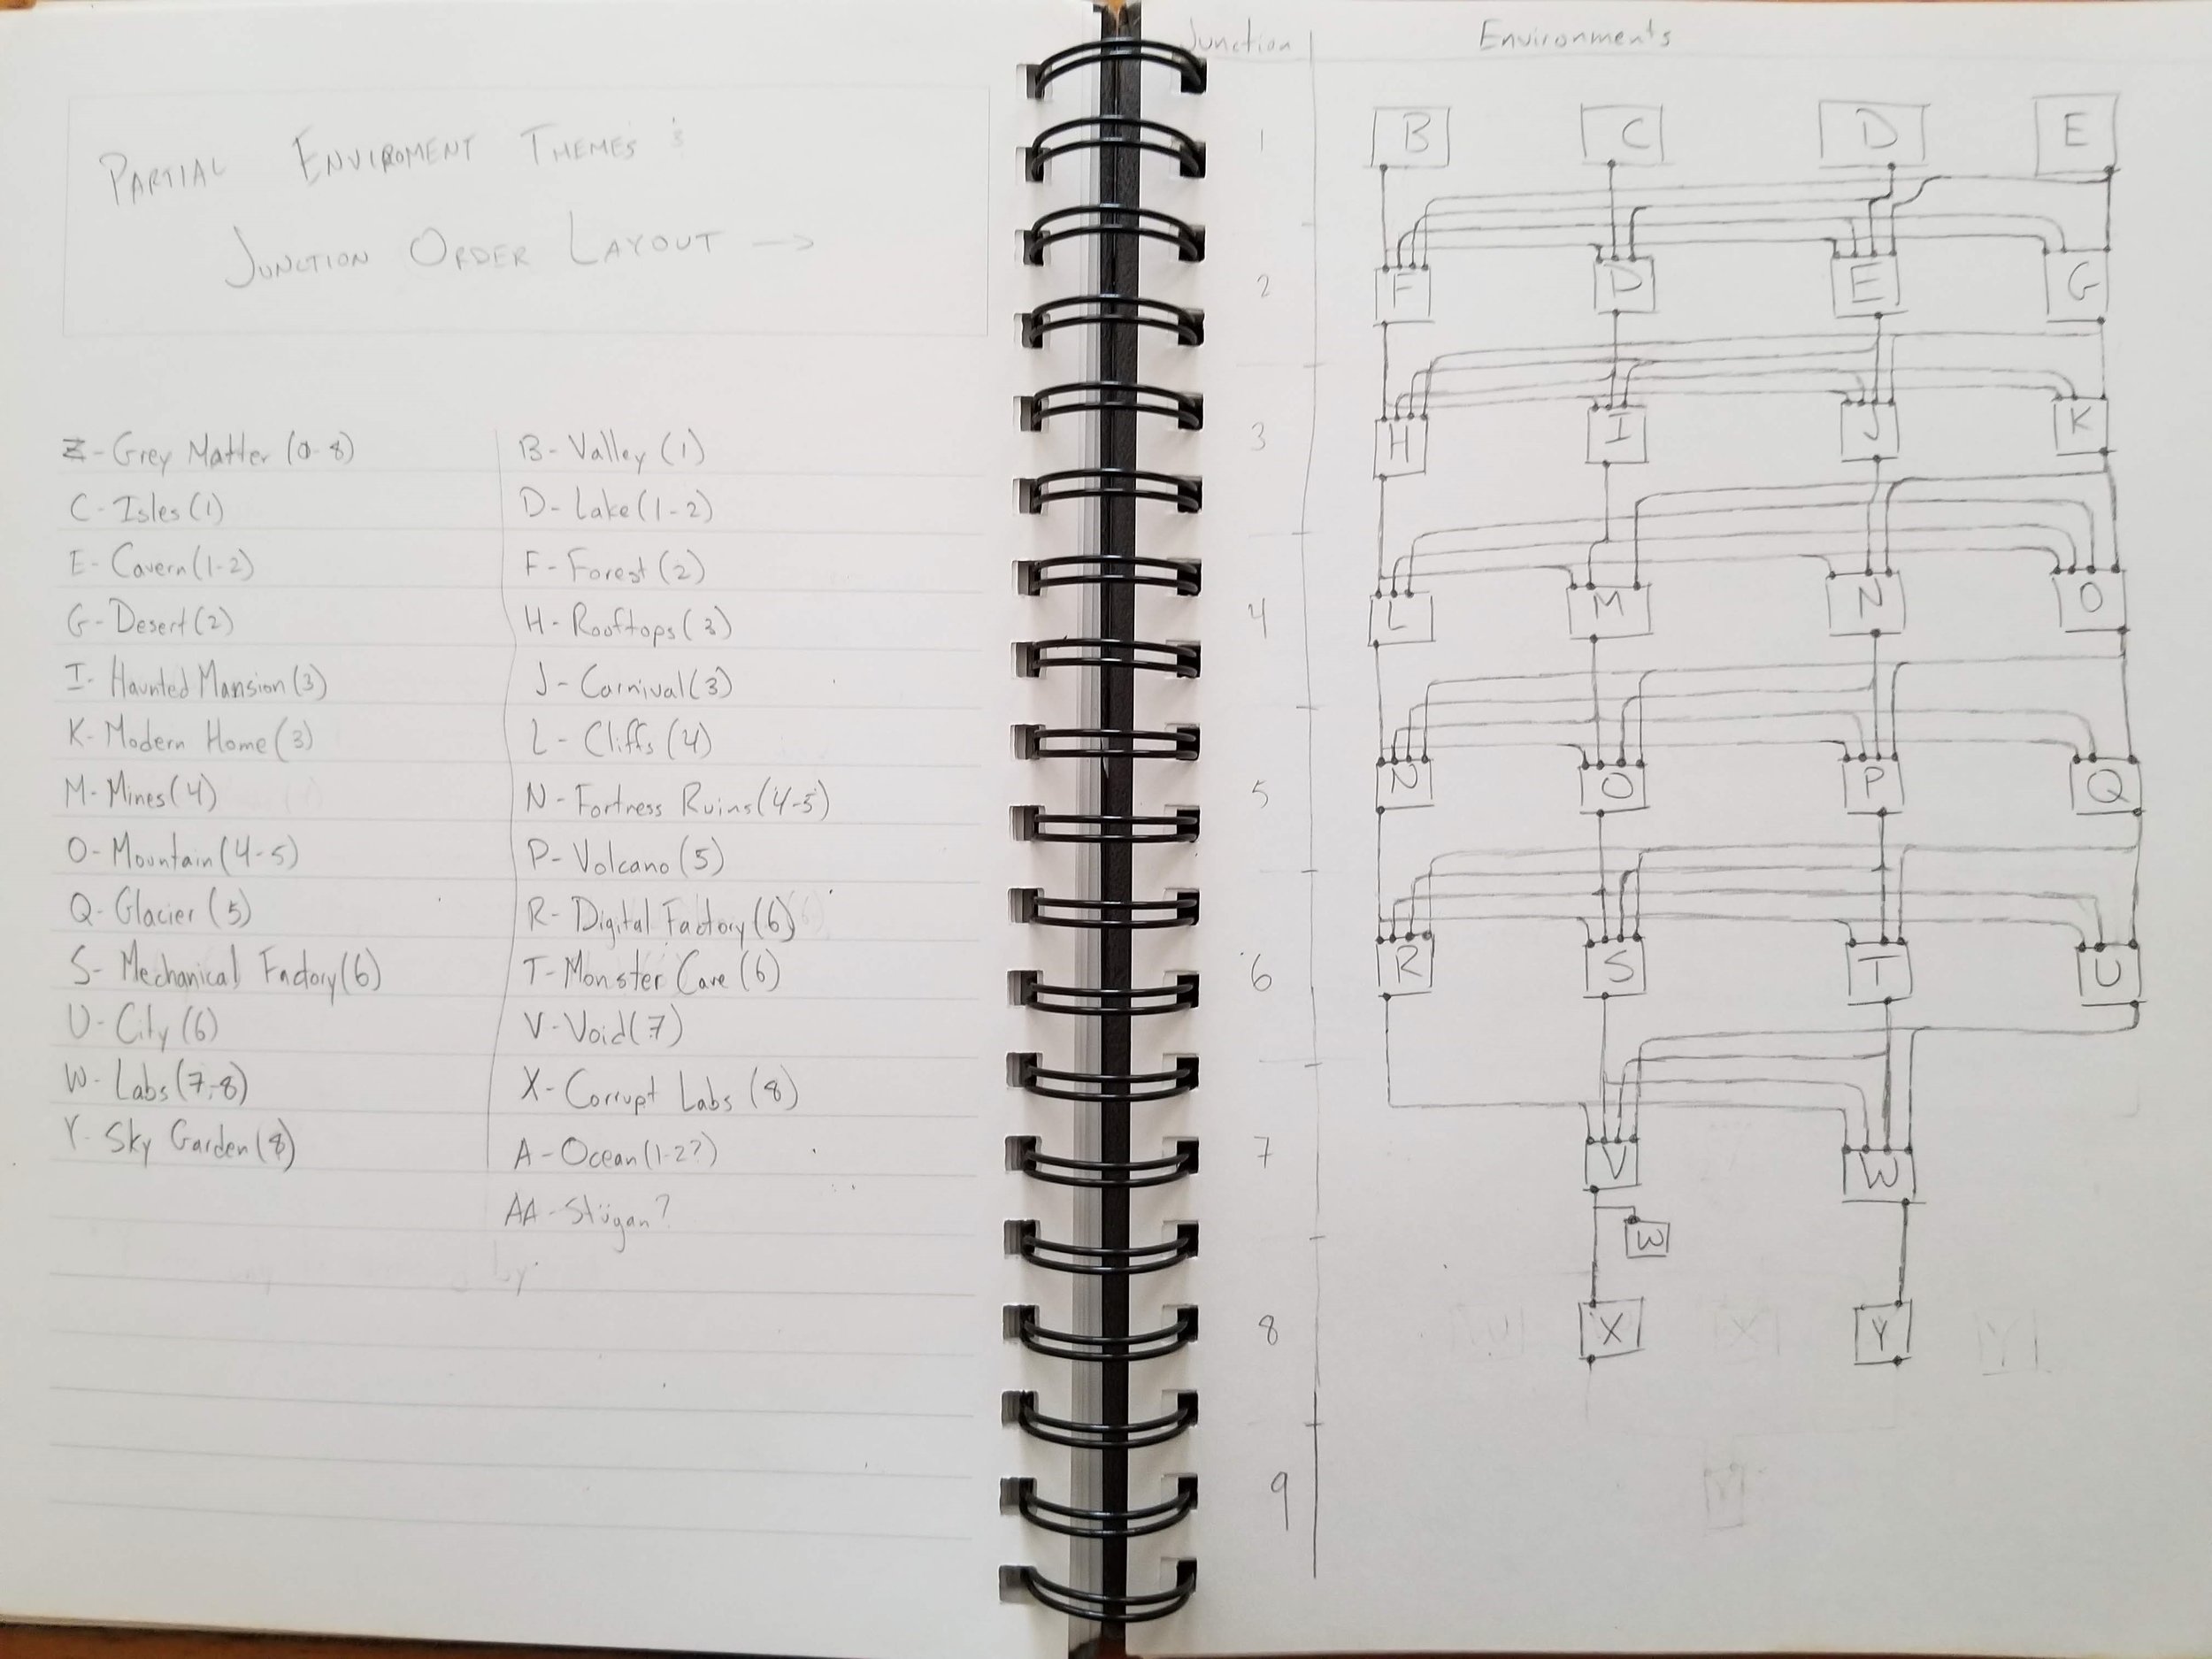 PARTIAL ENVIROMENT THEMES &
JUNCTION ORDER LAYOUT →
Z- Grey Matter (0-8)
C- Isles (1)
E- Cavern (1-2)
G- Desert (2)
I- Haunted Mansion (3)
K- Modern Home (3)
M- Mines (4)
O- Mountain (4-5)
Q- Glacier (5)
S- Mechanical Factory (6)
U- City (6)
W- Labs (7-8)
Y- Sky Garden (8)
B- Valley (1)
D- Lake (1-2)
F- Forest (2)
H- Rooftops (3)
J- Carnival (3)
L- Cliffs (4)
N- Fortress Ruins (4-5)
P- Volcano (5)
R- Digital Factory (6)
T- Monster Cave (6)
V- Void (7)
X- Corrupt Labs (8)
A- Ocean (1-2?)
AA- Stügan?
Junction Environments
1 B C D E
2 F D E G
3 H I J K
4 L M N O
5 N O P Q
6 R S T U
7 V W
W
8 X Y
9